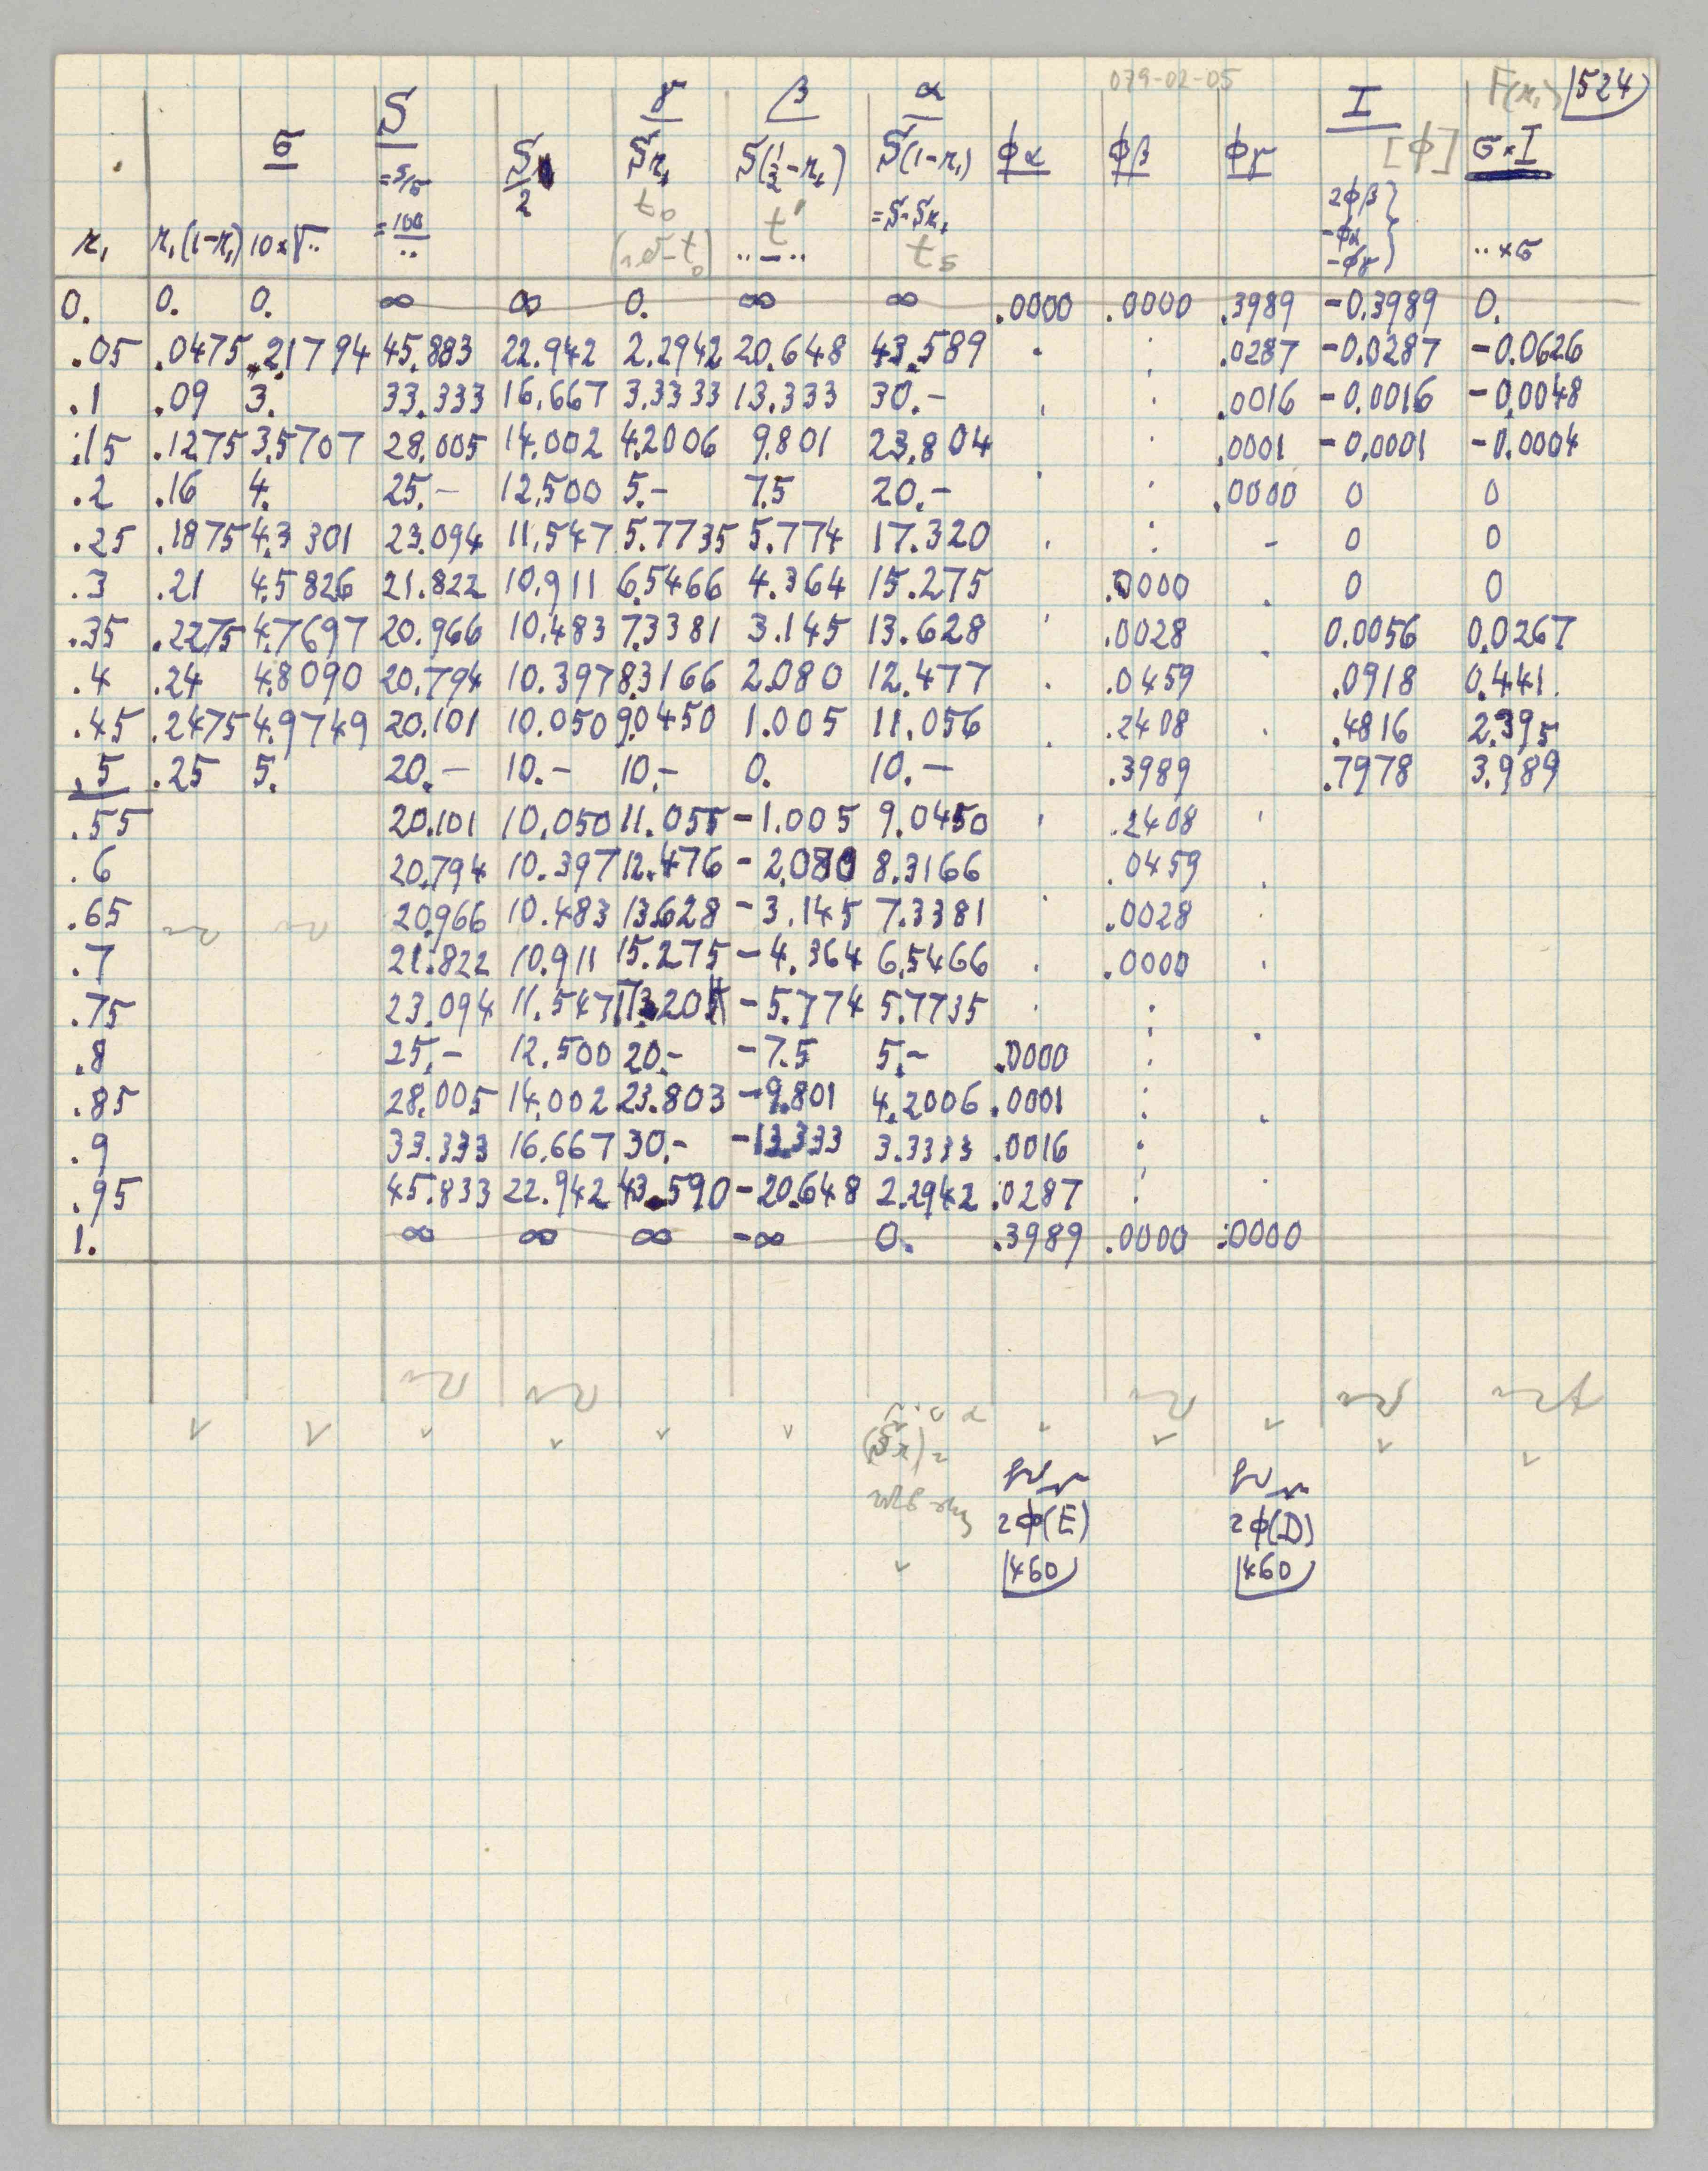 079-02-05
F(r₁) 524
S γ β α I
σ = s/σ S/2 Sr₁ S(½-r₁) S(1-r₁) φα φβ φγ [φ] σ×I
t₀ t' =S-Sr₁ 2φβ}
r₁ r₁(1-r₁) 10×√·· =100/·· ··-·· t₅ -φα -φγ} ··×σ
0. 0. 0. ∞ ∞ 0. ∞ ∞ .0000 .0000 .3989 -0.3989 0.
.05 .0475 .21794 45.883 22.942 2.2942 20.648 43.589 · : .0287 -0.0287 -0.0626
.1 .09 3. 33.333 16.667 3.3333 13.333 30.- · · .0016 -0.0016 -0.0048
.15 .1275 3.5707 28.005 14.002 4.2006 9.801 23.804 : .0001 -0.0001 -0.0004
.2 .16 4. 25.- 12.500 5.- 7.5 20.- · : .0000 0 0
.25 .1875 4.3301 23.094 11.547 5.7735 5.774 17.320 · : - 0 0
.3 .21 4.5826 21.822 10.911 6.5466 4.364 15.275 .0000 · 0 0
.35 .2275 4.7697 20.966 10.483 7.3381 3.145 13.628 · .0028 · 0.0056 0.0267
.4 .24 4.8090 20.794 10.397 8.3166 2.080 12.477 · .0459 .0918 0.441.
.45 .2475 4.9749 20.101 10.050 9.0450 1.005 11.056 · .2408 · .4816 2.395
.5 .25 5. 20.- 10.- 10.- 0. 10.- .3989 .7978 3.989
.55 20.101 10.050 11.055 -1.005 9.0450 · .2408 ·
.6 20.794 10.397 12.476 -2.080 8.3166 .0459 ·
.65 20.966 10.483 13.628 -3.145 7.3381 · .0028 ·
.7 21.822 10.911 15.275 -4.364 6.5466 · .0000 ·
.75 23.094 11.547 -5.774 5.7735 · :
.8 25.- 12.500 20.- -7.5 5.- .0000 : ·
.85 28.005 14.002 23.803 -9.801 4.2006 .0001 : ·
.9 33.333 16.667 30.- -13.333 3.3333 .0016 ·
.95 45.833 22.942 43.590 -20.648 2.2942 .0287 : ·
1. ∞ ∞ ∞ -∞ 0. .3989 .0000 .0000
(Sr)
2φ(E) 2φ(D)
460 460